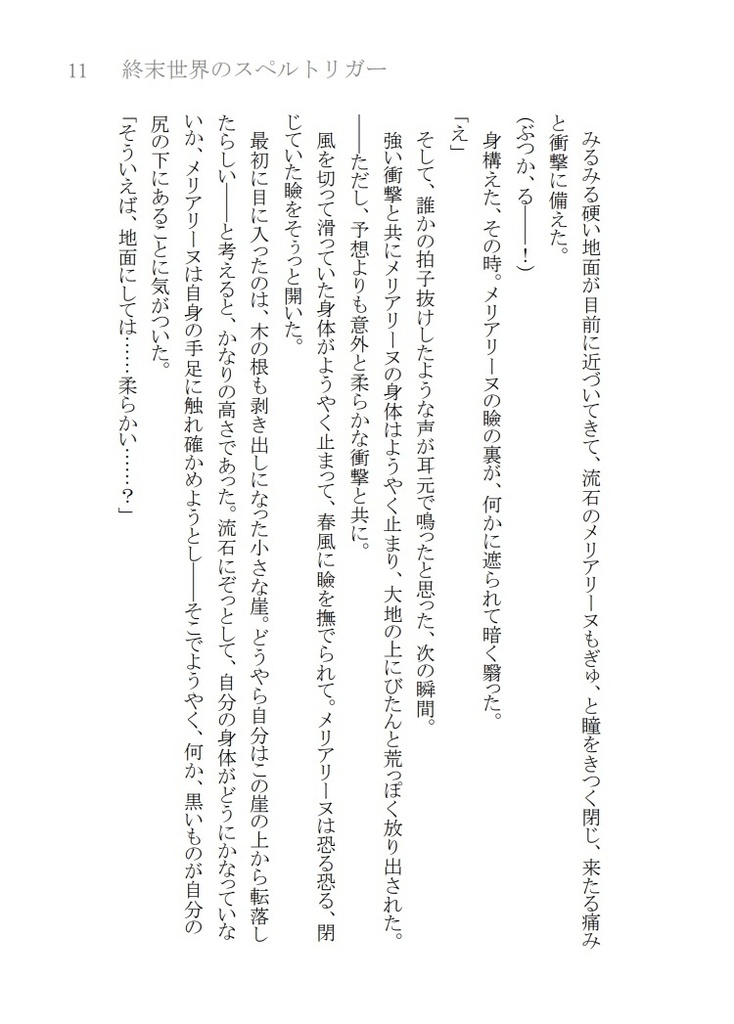 11 終末世界のスペルトリガー
　みるみる硬い地面が目前に近づいてきて、流石のメリアリーヌもぎゅ、と瞳をきつく閉じ、来たる痛み
と衝撃に備えた。
(ぶつか、る――！)
　身構えた、その時。メリアリーヌの瞼の裏が、何かに遮られて暗く翳った。
「え」
　そして、誰かの拍子抜けしたような声が耳元で鳴ったと思った、次の瞬間。
　強い衝撃と共にメリアリーヌの身体はようやく止まり、大地の上にびたんと荒っぽく放り出された。
――ただし、予想よりも意外と柔らかな衝撃と共に。
　風を切って滑っていた身体がようやく止まって、春風に瞼を撫でられて。メリアリーヌは恐る恐る、閉
じていた瞼をそぅっと開いた。
　最初に目に入ったのは、木の根も剥き出しになった小さな崖。どうやら自分はこの崖の上から転落し
たらしい――と考えると、かなりの高さであった。流石にぞっとして、自分の身体がどうにかなっていな
いか、メリアリーヌは自身の手足に触れ確かめようとし――そこでようやく、何か、黒いものが自分の
尻の下にあることに気がついた。
「そういえば、地面にしては……柔らかい……？」